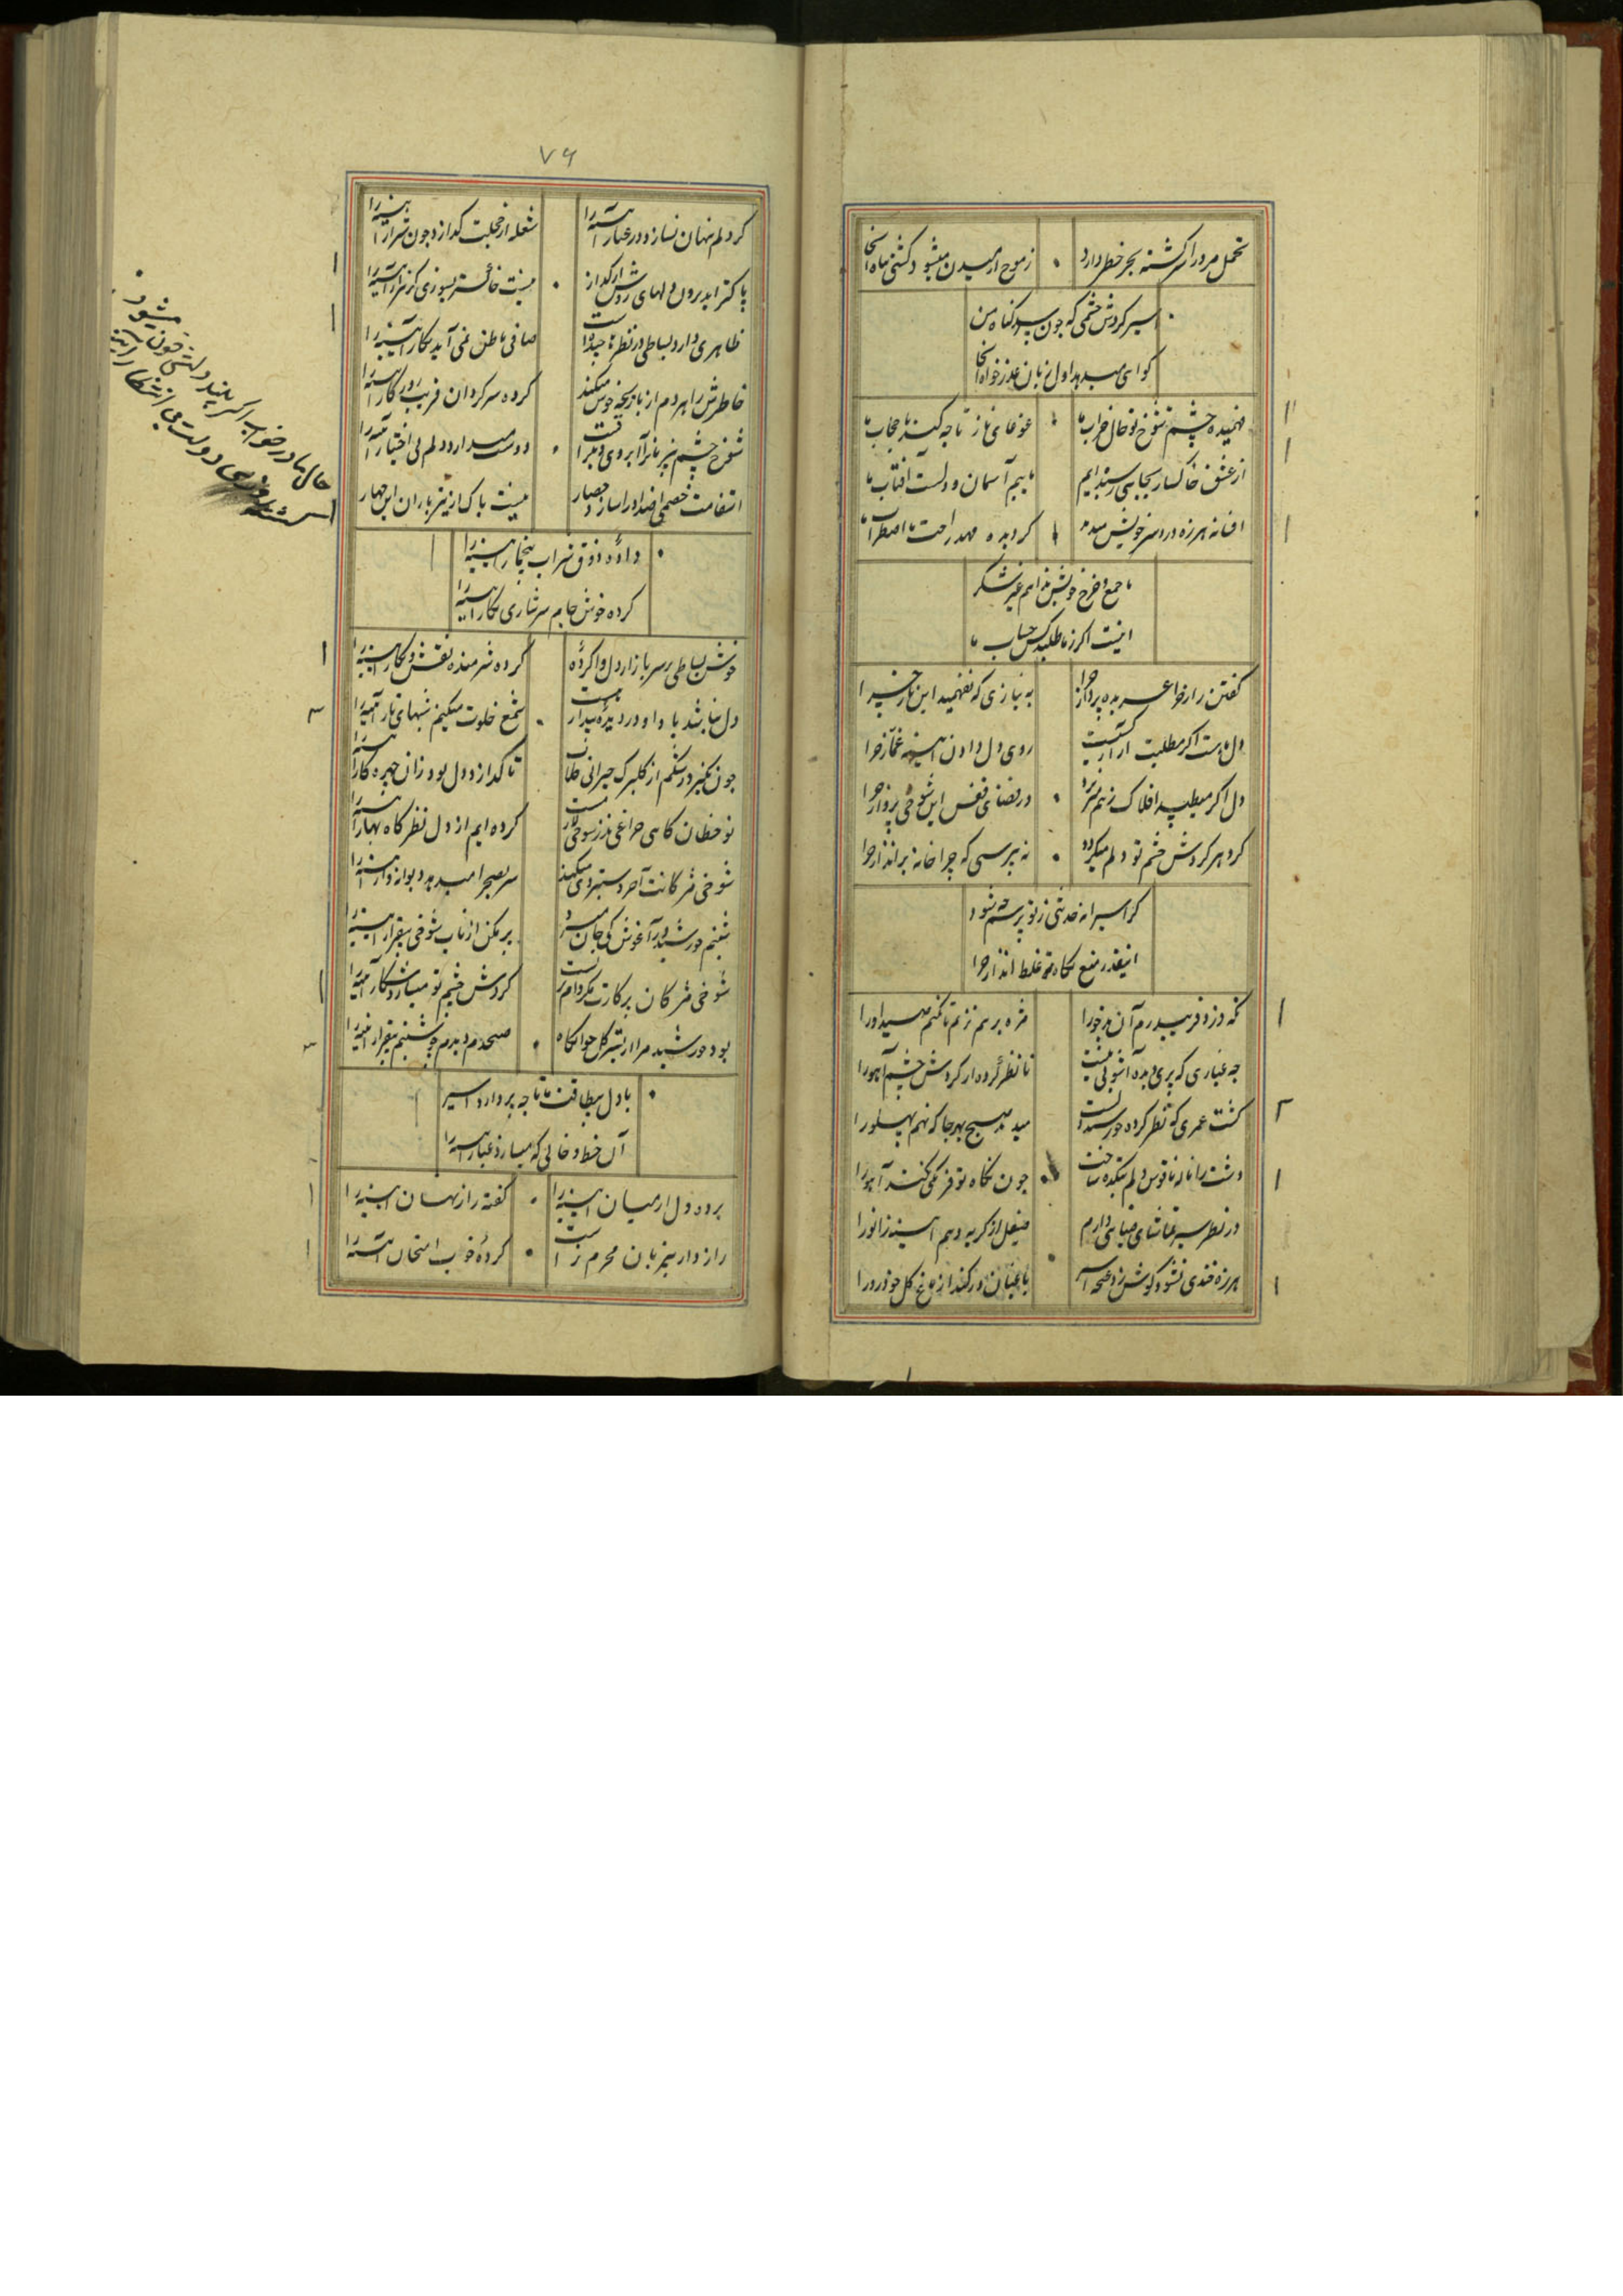 تحمل مرد را سرگشته بحر خطر دارد
ز موج آرمیدن میشود کشتی تباه اینجا
اسیر گردش چشمی که چون پرسد گناه من
گواهی میدهد اول زبان عذرخواه اینجا
فهمیده چشم شوخ تو حال خراب ما
غوغای ناز تا چه کند با حجاب ما
از عشق خاکسار بجایی رسیده ایم
ماییم آسمان و دلست آفتاب ما
افسانه هرزه درد سر خویش میدهد
گردیده مهد راحت ما اضطراب ما
ما جمع و خرج خویش ندانیم غیر شکر
اینست اگر ز ما طلبد کس حساب ما
گفتن راز خوا عربده پرداز چرا
به نیازی که نفهمید این ناز چرا
دل ماست اگر مطلبت آزار کسیست
روی دل دادن آیینه غماز چرا
دل اگر میطپد افلاک ز هم میریزد
در فضای قفس این شوخی پرواز چرا
گرد هر گردش چشم تو دلم میگردد
نه بپرسی که چرا خانه برانداز چرا
گر اسیرانه خدنگی ز تو پرسیده شود
اینقدر منع نگاه غلط انداز چرا
نگه دزد فریبد رم آن بدخو را
مژه بر هم نزنم تا نکنم صید او را
چه غباری که پری دیده آشوبی نیست
تا نظر کرده از گردش چشم آهو را
گشت عمری که نظر کرده خورشید دلست
میدمد صبح بهر جا که نهم پهلو را
دشت را ناله ناقوس دلم بتکده ساخت
چون نگاه تو فرنگی کند آهو را
در نظر سیر تماشای خیالی دارم
منفعل از گریه دهم آینه زانو را
هرزه خندی نشود گوش زد صحه اسیر
باغبان در نگشد از باغ گل خودرو را
۷۶
گر دلم پنهان نسازد در غبار آیینه را
شعله از خجلت گدازد چون شرار آیینه را
پاکتر آید برون دلهای روشن از گداز
نیست خاکستر بسوزی گر هزار آیینه را
ظاهری دارد بساطی در نظرها چیده است
صافی باطن نمی آید بکار آیینه را
خاطرش را هر دم از بازیچه خوش میکند
کرده سرگردان فریب روزگار آیینه را
دوست میدارد دلم بی اختیار آیینه را
نیست باک از تیرباران این حصار
داده ذوق شراب بیخمار آیینه را
کرده خوش جام سرشاری نگار آیینه را
خوش بساطی بر سر بازار دل وا کرده
کرده شرمنده نقش و نگار آیینه را
دل نباشد با دا و در دیده بیدار نیست
شمع خلوت میکنم شبهای تار آیینه را
تا گداز دل بود زان چهره کار آیینه را
کرده ایم از دل نظرگاه بهار آیینه را
شوخی مژگانت آخر دستبردی میکند
سر بصحرا میدهد دیوانه وار آیینه را
شبنم خورشید در آغوش کی جان میبرد
بر مکن از تاب شوخی بیقرار آیینه را
شوخی مژگان پرکارت مگر دام ترست
گردش چشم تو میسازد شکار آیینه را
بود خورشید مرا از بستر گل خوابگاه
صبحدم دیدم چو شبنم بیقرار آیینه را
با دل بیطاقت ما تا چه پردازد اسیر
آن خط و خالی که میسازد غبار آیینه را
برده دل از میان آیینه را
گفته راز نهان آیینه را
رازدار بیزبان محرم ترست
کرده خوب امتحان آیینه را